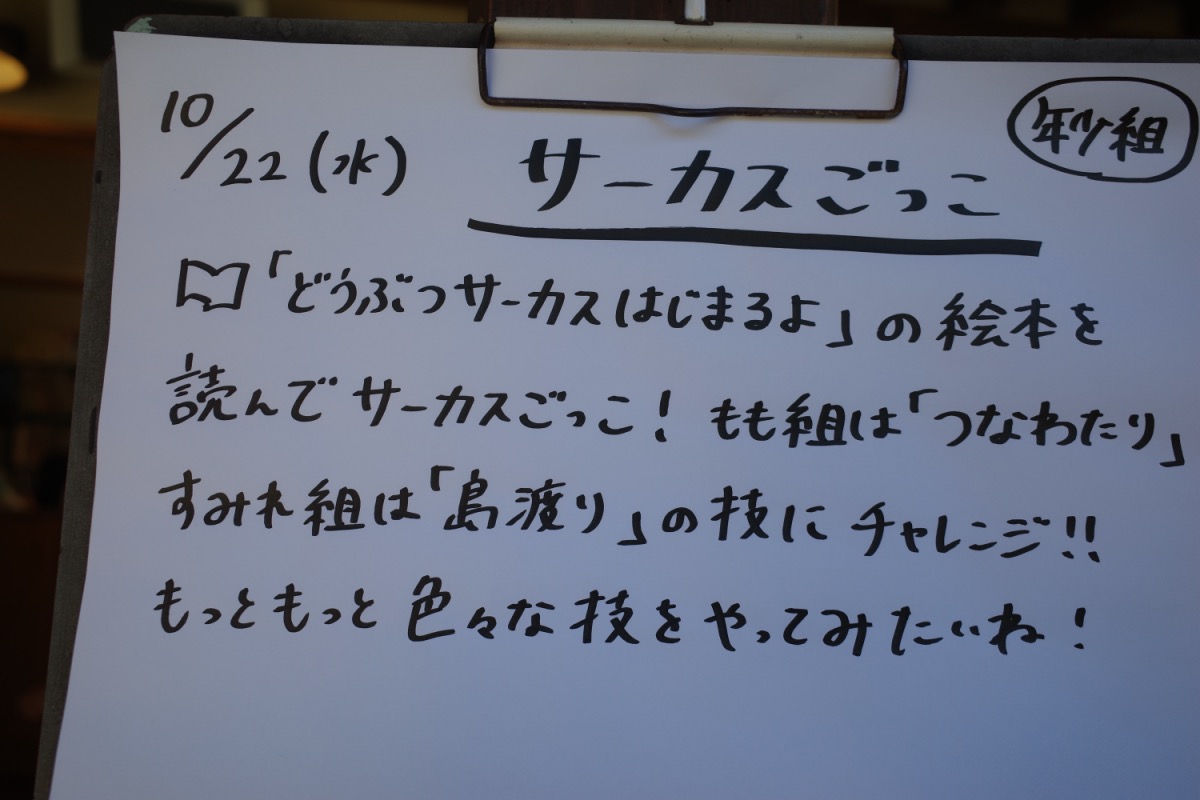 10/22(水) サーカスごっこ 年少組
「どうぶつサーカスはじまるよ」の絵本を
読んでサーカスごっこ! もも組は「つなわたり」
すみれ組は「島渡り」の技にチャレンジ!!
もっともっと色々な技をやってみたいね!